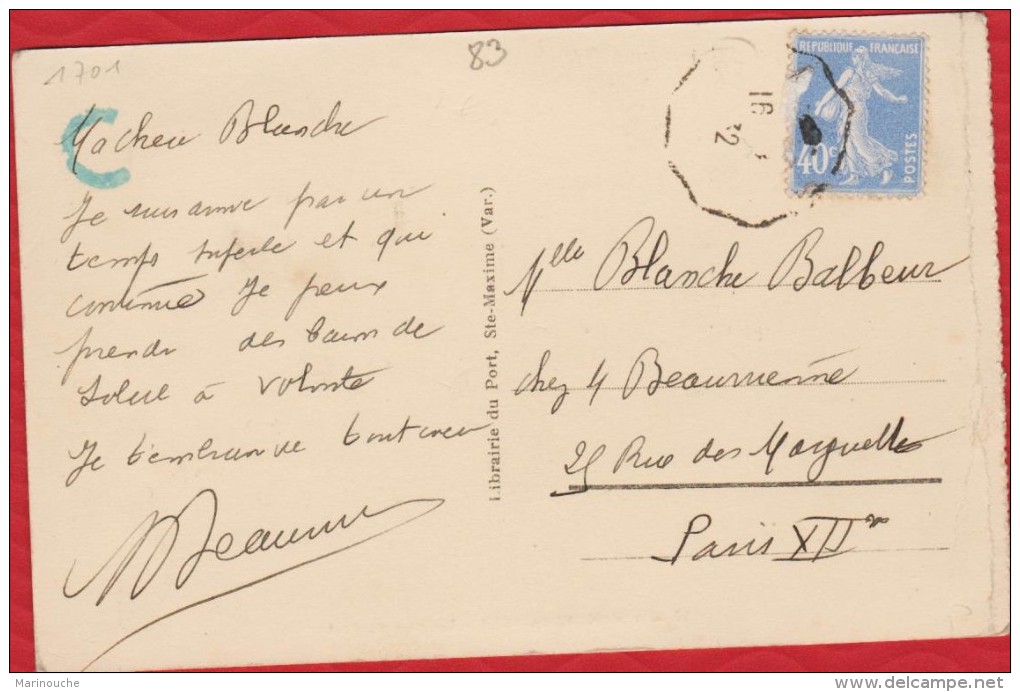 1701
83
Ma chère Blanche
Je suis arrivé par un
temps superbe et qui
continue Je peux
prendre des bains de
soleil à volonté
Je t'embrasse tout coeur
REPUBLIQUE FRANÇAISE
40c
POSTES
16
12
Librairie du Port, Ste-Maxime (Var.)
Mlle Blanche Balbeur
chez M
Rue des
Paris XIIe
Marinouche
delcampe.net